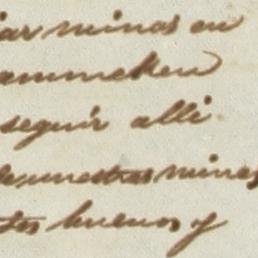 iar minas en
ammeken
seguir alli
demuestras minas
tes buenos y